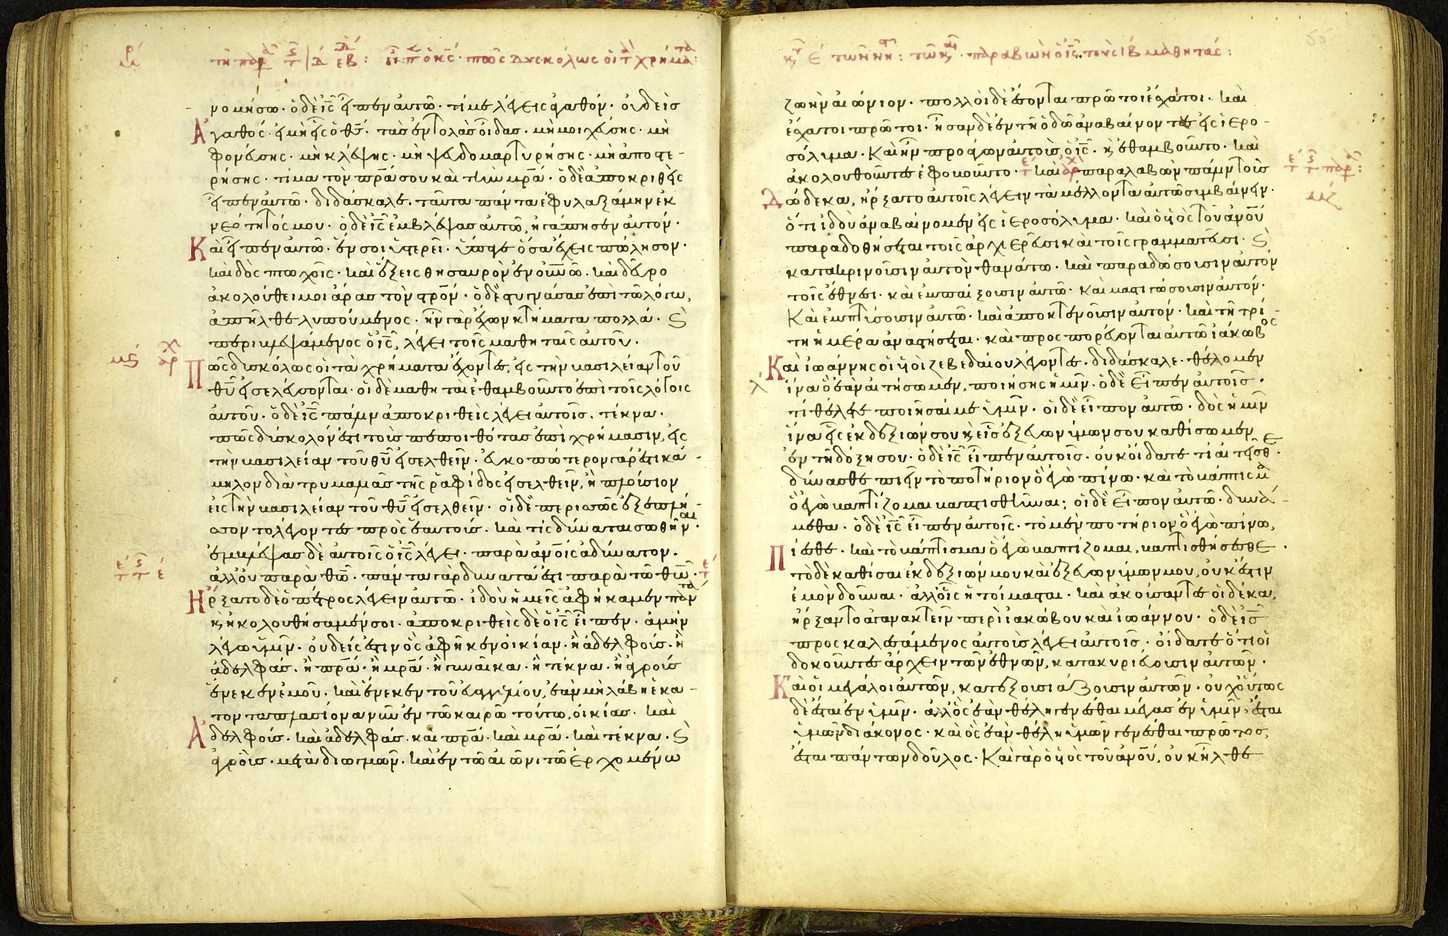 νομήσω· ὁ δὲ ἰς εἶπεν αὐτῶ· τί με λέγεις ἀγαθόν· οὐδεὶς
Ἀγαθός· εἰ μὴ εἷς ὁ θς· τὰς ἐντολὰς οἶδας· μὴ μοιχεύσης· μὴ
φονεύσης· μὴ κλέψης· μὴ ψευδομαρτυρήσης· μὴ ἀποστε-
ρήσης· τίμα τὸν πρα σου καὶ τὴν μρα· ὁ δὲ ἀποκριθεὶς
εἶπεν αὐτῶ· διδάσκαλε. ταῦτα πάντα ἐφυλαξάμην ἐκ
νεότητός μου· ὁ δὲ ἰς ἐμβλέψας αὐτῶ, ἠγάπησεν αὐτόν·
Καὶ εἶπεν αὐτῶ· ἕν σοι ὑστερεῖ· ὕπαγε ὅσα ἔχεις πώλησον·
καὶ δὸς πτωχοῖς· καὶ ἕξεις θησαυρὸν ἐν οὐνῶ· καὶ δεῦρο
ἀκολούθει μοι ἄρας τὸν στρον· ὁ δὲ στυγνάσας ἐπὶ τῶ λόγω,
ἀπῆλθε λυπούμενος· ἦν γὰρ ἔχων κτήματα πολλά· ϗ
περιβλεψάμενος ὁ ἰς, λέγει τοῖς μαθηταῖς αὐτοῦ·
Πῶς δυσκόλως οἱ τὰ χρήματα ἔχοντες εἰς τὴν βασιλείαν τοῦ
θυ εἰσελεύσονται· οἱ δὲ μαθηταὶ ἐθαμβοῦντο ἐπὶ τοῖς λόγοις
αὐτοῦ· ὁ δὲ ἰς πάλιν ἀποκριθεὶς λέγει αὐτοῖς. τέκνα·
πῶς δύσκολόν ἐστι τοὺς πεποιθότας ἐπὶ χρήμασιν, εἰς
τὴν βασιλείαν τοῦ θυ εἰσελθεῖν· εὐκοπώτερον γάρ ἐστι κά-
μηλον διὰ τρυμαλιᾶς τῆς ῥαφίδος εἰσελθεῖν, ἢ πλούσιον
εἰς τὴν βασιλείαν τοῦ θυ εἰσελθεῖν· οἱ δὲ περισσῶς ἐξεπλή-
σσοντο λέγοντες πρὸς ἑαυτούς· καὶ τίς δύναται σωθῆναι·
ἐμβλέψας δὲ αὐτοῖς ὁ ἰς λέγει· παρὰ ανοις ἀδύνατον.
ἀλλ' οὐ παρὰ θω· πάντα γὰρ δυνατά ἐστι παρὰ τῶ θω·
Ἤρξατο δὲ ὁ πέτρος λέγειν αὐτῶ· ἰδοὺ ἡμεῖς ἀφήκαμεν πάντα
ϗ ἠκολουθήσαμέν σοι· ἀποκριθεὶς δὲ ὁ ἰς εἶπεν· ἀμὴν
λέγω ὑμῖν· οὐδείς ἐστιν ὃς ἀφῆκεν οἰκίαν· ἢ ἀδελφούς· ἢ
ἀδελφάς· ἢ πρα· ἢ μρα· ἢ γυναῖκα· ἢ τέκνα· ἢ ἀγρούς
ἕνεκεν ἐμοῦ· καὶ ἕνεκεν τοῦ εὐαγγελίου, ἐὰν μὴ λάβη ἑκα-
τονταπλασίονα νῦν ἐν τῶ καιρῶ τούτω, οἰκίας· καὶ
Ἀδελφούς· καὶ ἀδελφάς· καὶ πρα· καὶ μρα· καὶ τέκνα· ϗ
ἀγρούς· μετὰ διωγμῶν· καὶ ἐν τῶ αἰῶνι τῶ ἐρχομένω
ζωὴν αἰώνιον· πολλοὶ δὲ ἔσονται πρῶτοι ἔσχατοι· καὶ
ἔσχατοι πρῶτοι· ἦσαν δὲ ἐν τῆ ὁδῶ ἀναβαίνοντες εἰς ἱερο-
σόλυμα· Καὶ ἦν προάγων αὐτοὺς ὁ ἰς· ϗ ἐθαμβοῦντο· καὶ
ἀκολουθοῦντες ἐφοβοῦντο· καὶ παραλαβὼν πάλιν τοὺς
δώδεκα, ἤρξατο αὐτοῖς λέγειν τὰ μέλλοντα αὐτῶ συμβαίνειν·
ὅτι ἰδοὺ ἀναβαίνομεν εἰς ἱεροσόλυμα· καὶ ὁ υἱὸς τοῦ ανου
παραδοθήσεται τοῖς ἀρχιερεῦσι καὶ τοῖς γραμματεῦσι· ϗ
κατακρινοῦσιν αὐτὸν θανάτω· καὶ παραδώσουσιν αὐτὸν
τοῖς ἔθνεσι· καὶ ἐμπαίξουσιν αὐτῶ· καὶ μαστιγώσουσιν αὐτόν·
Καὶ ἐμπτύσουσιν αὐτῶ· καὶ ἀποκτενοῦσιν αὐτόν· καὶ τῆ τρί-
τη ἡμέρα ἀναστήσεται· καὶ προσπορεύονται αὐτῶ ἰάκωβος
Καὶ ἰωάννης οἱ υἱοὶ ζεβεδαίου λέγοντες· διδάσκαλε· θέλομεν
ἵνα ὃ ἐὰν αἰτήσωμεν, ποιήσης ἡμῖν· ὁ δὲ εἶπεν αὐτοῖς·
τί θέλετε ποιῆσαί με ὑμῖν· οἱ δὲ εἶπον αὐτῶ· δὸς ἡμῖν
ἵνα εἷς ἐκ δεξιῶν σου ϗ εἷς ἐξ εὐωνύμων σου καθίσωμεν
ἐν τῆ δόξη σου· ὁ δὲ ἰς εἶπεν αὐτοῖς· οὐκ οἴδατε τί αἰτεῖσθε·
δύνασθε πιεῖν τὸ ποτήριον ὃ ἐγὼ πίνω· καὶ τὸ βάπτισμα
ὃ ἐγὼ βαπτίζομαι βαπτισθῆναι; οἱ δὲ εἶπον αὐτῶ· δυνά-
μεθα· ὁ δὲ ἰς εἶπεν αὐτοῖς· τὸ μὲν ποτήριον ὃ ἐγὼ πίνω,
Πίεσθε· καὶ τὸ βάπτισμα ὃ ἐγὼ βαπτίζομαι, βαπτισθήσεσθε·
τὸ δὲ καθίσαι ἐκ δεξιῶν μου καὶ ἐξ εὐωνύμων μου, οὐκ ἔστιν
ἐμὸν δοῦναι· ἀλλ' οἷς ἡτοίμασται· καὶ ἀκούσαντες οἱ δέκα,
ἤρξαντο ἀγανακτεῖν περὶ ἰακώβου καὶ ἰωάννου· ὁ δὲ ἰς
προσκαλεσάμενος αὐτοὺς λέγει αὐτοῖς· οἴδατε ὅτι οἱ
δοκοῦντες ἄρχειν τῶν ἐθνῶν, κατακυριεύουσιν αὐτῶν·
Καὶ οἱ μεγάλοι αὐτῶν, κατεξουσιάζουσιν αὐτῶν· οὐχ οὕτως
δὲ ἔσται ἐν ὑμῖν· ἀλλ' ὃς ἐὰν θέλη γενέσθαι μέγας ἐν ὑμῖν, ἔσται
ὑμῶν διάκονος· καὶ ὃς ἐὰν θέλη ὑμῶν γενέσθαι πρῶτος,
ἔσται πάντων δοῦλος· Καὶ γὰρ ὁ υἱὸς τοῦ ανου, οὐκ ἦλθε